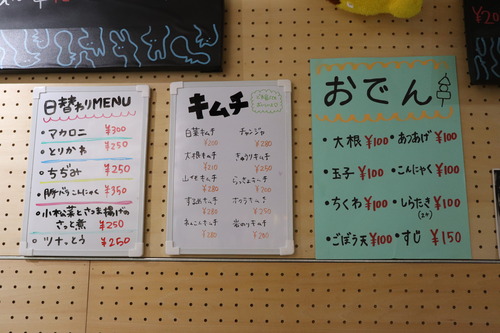 日替わりMENU
・マカロニ ¥300
・とりかわ ¥250
・ちぢみ ¥250
・豚バラこんにゃく ¥350
・小松菜とさつま揚げの
さっと煮 ¥250
・ツナっとう ¥250
キムチ
白菜キムチ チャンジャ
¥200 ¥280
大根キムチ きゅうりキムチ
¥210 ¥250
山イモキムチ らっきょキムチ
¥280 ¥200
するめキムチ
¥280 ¥250
れんこんキムチ 岩のりキムチ
¥280 ¥200
おでん
・大根 ¥100 ・あつあげ ¥100
・玉子 ¥100 ・こんにゃく ¥100
・ちくわ ¥100 ・しらたき ¥100
・ごぼう天 ¥100 ・すじ ¥150